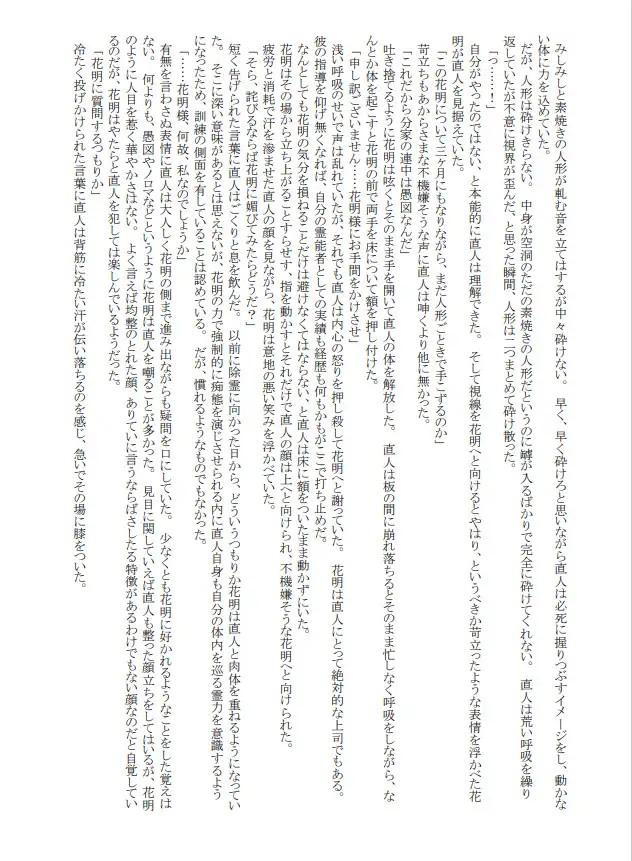 みしみしと素焼きの人形が軋む音を立てはするが中々砕けない。　早く、早く砕けろと思いながら直人は必死に握りつぶすイメージをし、動かな
い体に力を込めていた。
だが、人形は砕けきらない。　中身が空洞のただの素焼きの人形だというのに罅が入るばかりで完全に砕けてくれない。　直人は荒い呼吸を繰り
返していたが不意に視界が歪んだ、と思った瞬間、人形は二つまとめて砕け散った。
「っ……！」
自分がやったのではない、と本能的に直人は理解できた。　そして視線を花明へと向けるとやはり、というべきか苛立ったような表情を浮かべた花
明が直人を見据えていた。
「この花明について三ヶ月にもなりながら、まだ人形ごときで手こずるのか」
苛立ちもあからさまな不機嫌そうな声に直人は呻くより他に無かった。
「これだから分家の連中は愚図なんだ」
吐き捨てるように花明は呟くとそのまま手を開いて直人の体を解放した。　直人は板の間に崩れ落ちるとそのまま忙しなく呼吸をしながら、な
んとか体を起こすと花明の前で両手を床について額を押し付けた。
「申し訳ございません……花明様にお手間をかけさせ」
浅い呼吸のせいで声は乱れていたが、それでも直人は内心の怒りを押し殺して花明へと謝っていた。　花明は直人にとって絶対的な上司でもある。
彼の指導を仰げ無くなれば、自分の霊能者としての実績も経歴も何もかもがここで打ち止めだ。
なんとしても花明の気分を損ねることだけは避けなくてはならない、と直人は床に額をついたまま動かずにいた。
花明はその場から立ち上がることすらせず、指を動かすとそれだけで直人の顔は上へと向けられ、不機嫌そうな花明へと向けられた。
疲労と消耗で汗を滲ませた直人の顔を見ながら、花明は意地の悪い笑みを浮かべていた。
「そら、詫びるならば花明に媚びてみたらどうだ？」
短く告げられた言葉に直人はごくりと息を飲んだ。　以前に除霊に向かった日から、どういうつもりか花明は直人と肉体を重ねるようになってい
た。　そこに深い意味があるとは思えないが、花明の力で強制的に痴態を演じさせられる内に直人自身も自分の体内を巡る霊力を意識するよう
になったため、訓練の側面を有していることは認めている。　だが、慣れるようなものでもなかった。
「……花明様、何故、私なのでしょうか」
有無を言わさぬ表情に直人は大人しく花明の側まで進み出ながらも疑問を口にしていた。　少なくとも花明に好かれるようなことをした覚えは
ない。　何よりも、愚図やノロマなどというように花明は直人を嘲ることが多かった。　見目に関していえば直人も整った顔立ちをしてはいるが、花明
のように人目を惹く華やかさはない。　よく言えば均整のとれた顔、ありていに言うならばさしたる特徴があるわけでもない顔なのだと自覚してい
るのだが、花明はやたらと直人を犯しては楽しんでいるようだった。
「花明に質問するつもりか」
冷たく投げかけられた言葉に直人は背筋に冷たい汗が伝い落ちるのを感じ、急いでその場に膝をついた。